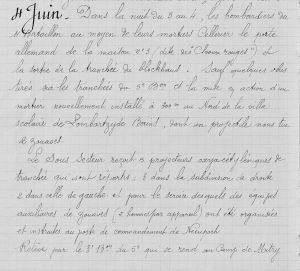 4 Juin - Dans la nuit du 3 au 4, les bombardiers du
4e Bataillon au moyen de leurs mortiers Cellerier le poste
allemand de la maison n°3 (dite des Choux rouges) et
la sortie de la tranchée du blockhaus. Sauf quelques obus
tirés sur les tranchées du 5e Bon et la mise en action d'un
mortier nouvellement installé à 300m au Nord de la villa
scolaire de Lombartzyde Bains, dont un projectile nous tue
1 zouave.
Le Sous Secteur reçoit 5 projecteurs oxyacétyléniques de
tranchée qui sont répartis : 3 dans la subdivision de droite
2 dans celle de gauche et pour le service desquels des équipes
auxiliaires de zouaves (2 hommes par appareil) ont été organisées
et instruites au poste de commandement de Nieuport
Relève par le 3e Bon du 5e qui se rend au Camp de Mitry